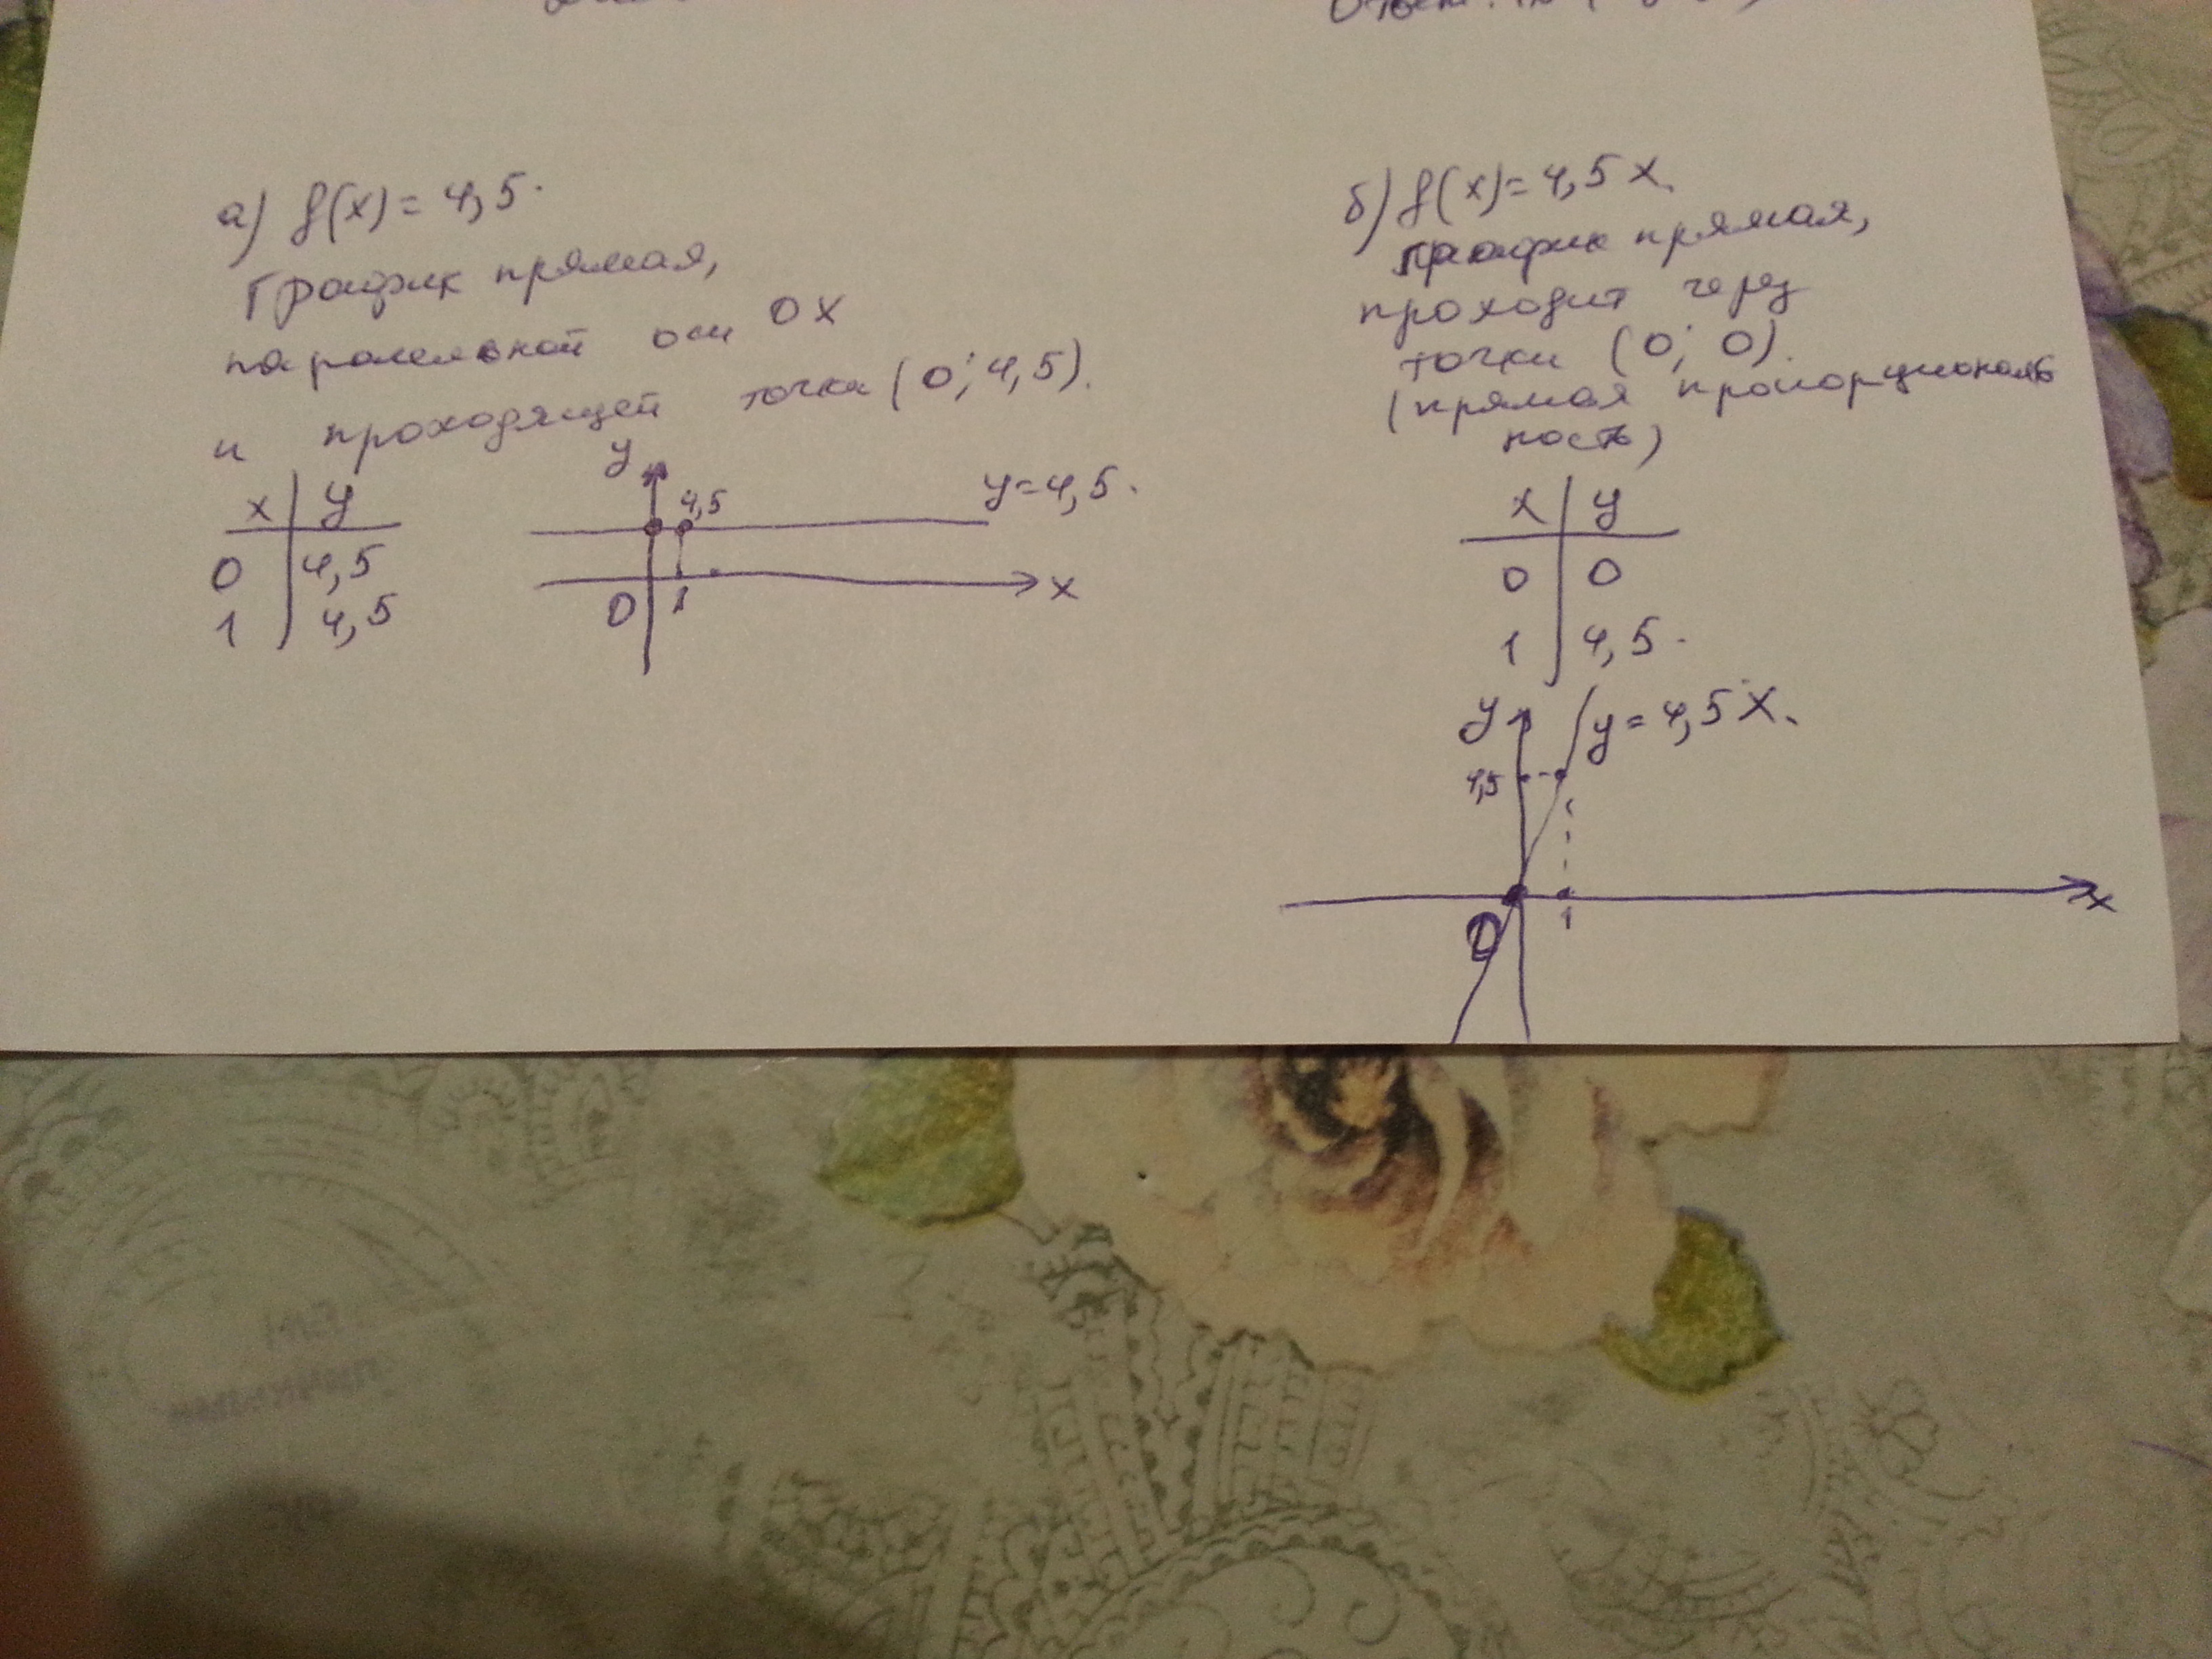 а) f(x)= 4,5.
График прямая,
паралельной оси OX
и проходящей точка (0; 4,5).
x | y
0 | 4,5
1 | 4,5
y
4,5
y=4,5.
0 1 x
б) f(x)= 4,5 x.
График прямая,
проходит через
точки (0; 0).
(прямая пропорциональ
ность)
x | y
0 | 0
1 | 4,5.
y
y= 4,5 x.
4,5
0 1 x